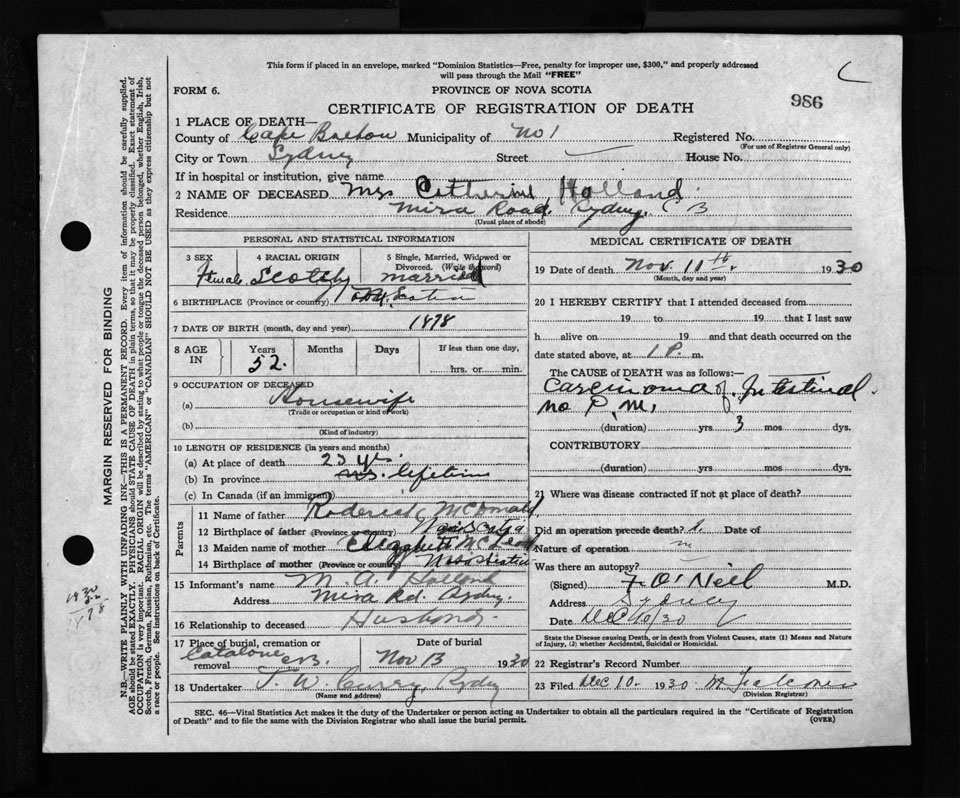 This form if placed in an envelope, marked "Dominion Statistics—Free, penalty for improper use, $300," and properly addressed
will pass through the Mail "FREE"
FORM 6.
PROVINCE OF NOVA SCOTIA
986
CERTIFICATE OF REGISTRATION OF DEATH
1 PLACE OF DEATH—
County of Cape Breton Municipality of No 1 Registered No.
(For use of Registrar General only)
City or Town Sydney Street House No.
If in hospital or institution, give name
2 NAME OF DECEASED Mrs Catherine Holland
Residence Mira Road. Sydney, C B
(Usual place of abode)
PERSONAL AND STATISTICAL INFORMATION
3 SEX 4 RACIAL ORIGIN 5 Single, Married, Widowed or
Divorced. (Write the word)
Female Scotch married
6 BIRTHPLACE (Province or country) Nova Scotia
7 DATE OF BIRTH (month, day and year) 1878
8 AGE IN Years Months Days If less than one day,
52. hrs. or min.
9 OCCUPATION OF DECEASED
(a) Housewife
(Trade or occupation or kind of work)
(b)
(Kind of industry)
10 LENGTH OF RESIDENCE (in years and months)
(a) At place of death 23 yrs.
(b) In province lifetime
(c) In Canada (if an immigrant)
Parents
11 Name of father Roderick McDonald
12 Birthplace of father (Province or country) Nova Scotia
13 Maiden name of mother Elizabeth McLeod
14 Birthplace of mother (Province or country) Nova Scotia
15 Informant's name M. A. Holland
Address Mira Rd. Sydney.
16 Relationship to deceased Husband
17 Place of burial, cremation or Date of burial
removal Catalone C.B. Nov 13 1930
18 Undertaker T. W. Curry, Sydney
(Name and address)
MEDICAL CERTIFICATE OF DEATH
19 Date of death Nov. 11th. 1930
(Month, day and year)
20 I HEREBY CERTIFY that I attended deceased from
19 to 19 that I last saw
h alive on 19 and that death occurred on the
date stated above, at 1 P. m.
The CAUSE of DEATH was as follows:—
Carcinoma of Intestinal.
no P.M.
(duration) yrs 3 mos dys.
CONTRIBUTORY
(duration) yrs mos dys.
21 Where was disease contracted if not at place of death?
Did an operation precede death? Date of
Nature of operation
Was there an autopsy? no
(Signed) F. O'Neil M.D.
Address Sydney
Date Dec 10/30
State the Disease causing Death, or in death from Violent Causes, state (1) Means and Nature
of Injury, (2) whether Accidental, Suicidal or Homicidal.
22 Registrar's Record Number
23 Filed Dec 10. 1930 M Falconer
(Division Registrar)
SEC. 46—Vital Statistics Act makes it the duty of the Undertaker or person acting as Undertaker to obtain all the particulars required in the "Certificate of Registration
of Death" and to file the same with the Division Registrar who shall issue the burial permit.
(OVER)
MARGIN RESERVED FOR BINDING
N.B.—WRITE PLAINLY WITH UNFADING INK—THIS IS A PERMANENT RECORD. Every item of information should be carefully supplied.
AGE should be stated EXACTLY. PHYSICIANS should STATE CAUSE OF DEATH in plain terms, so that it may be properly classified. Exact statement of
OCCUPATION is very important. RACIAL ORIGIN will be described by stating to what people or tongue the deceased person belonged, whether English, Irish,
Scotch, French, German, Russian, Ruthenian, etc. The terms "AMERICAN" or "CANADIAN" SHOULD NOT BE USED as they express citizenship but not
a race or people. See instructions on back of Certificate.
1930
52
1878